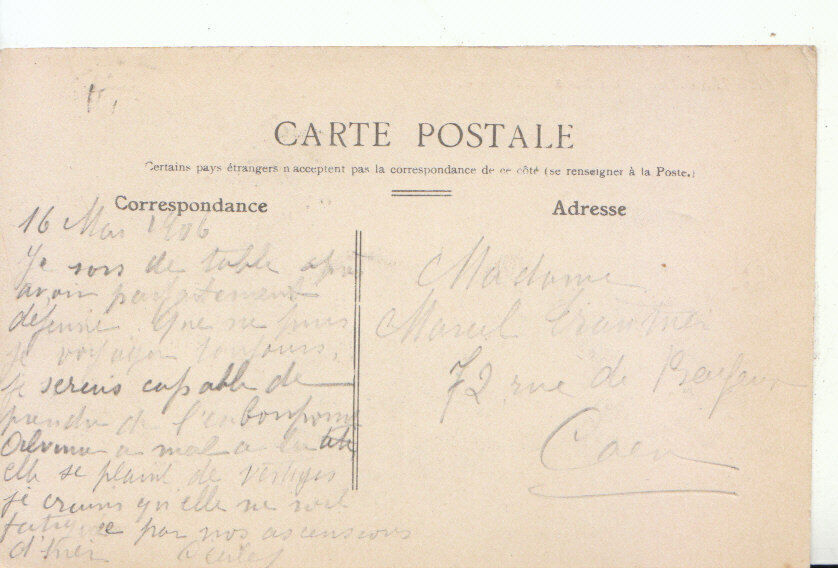 CARTE POSTALE
Certains pays étrangers n'acceptent pas la correspondance de ce côté (se renseigner à la Poste.)
Correspondance
16 Mai 1906
Je sors de table après
avoir parfaitement
déjeuné Que ne puis
je voyager toujours,
je serais capable de
prendre de l'embonpoint
a mal a la tête
elle se plaint de vertiges
je crains qu'elle ne soit
fatiguée par nos ascensions
d'hier
Adresse
Madame
Marcel
72 rue de
Caen